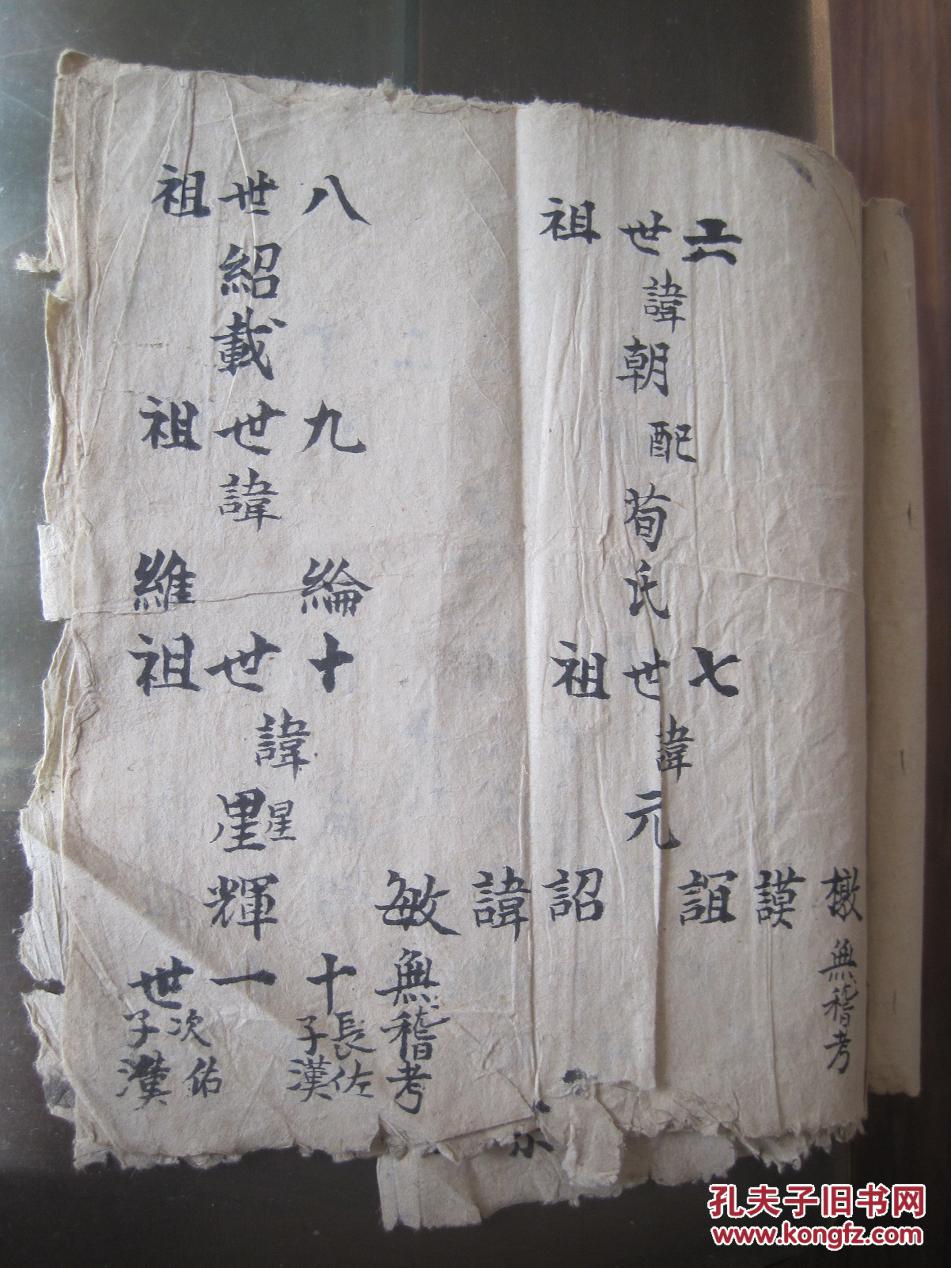 六世祖
諱朝
配荀氏
七世祖
諱元
謨
誼
詔
諱
敏
無稽考
無稽考
八世祖
紹載
九世祖
諱
綸
維
十世祖
諱
星輝
十一世
長子漢佐
次子漢佑
孔夫子旧书网
www.kongfz.com